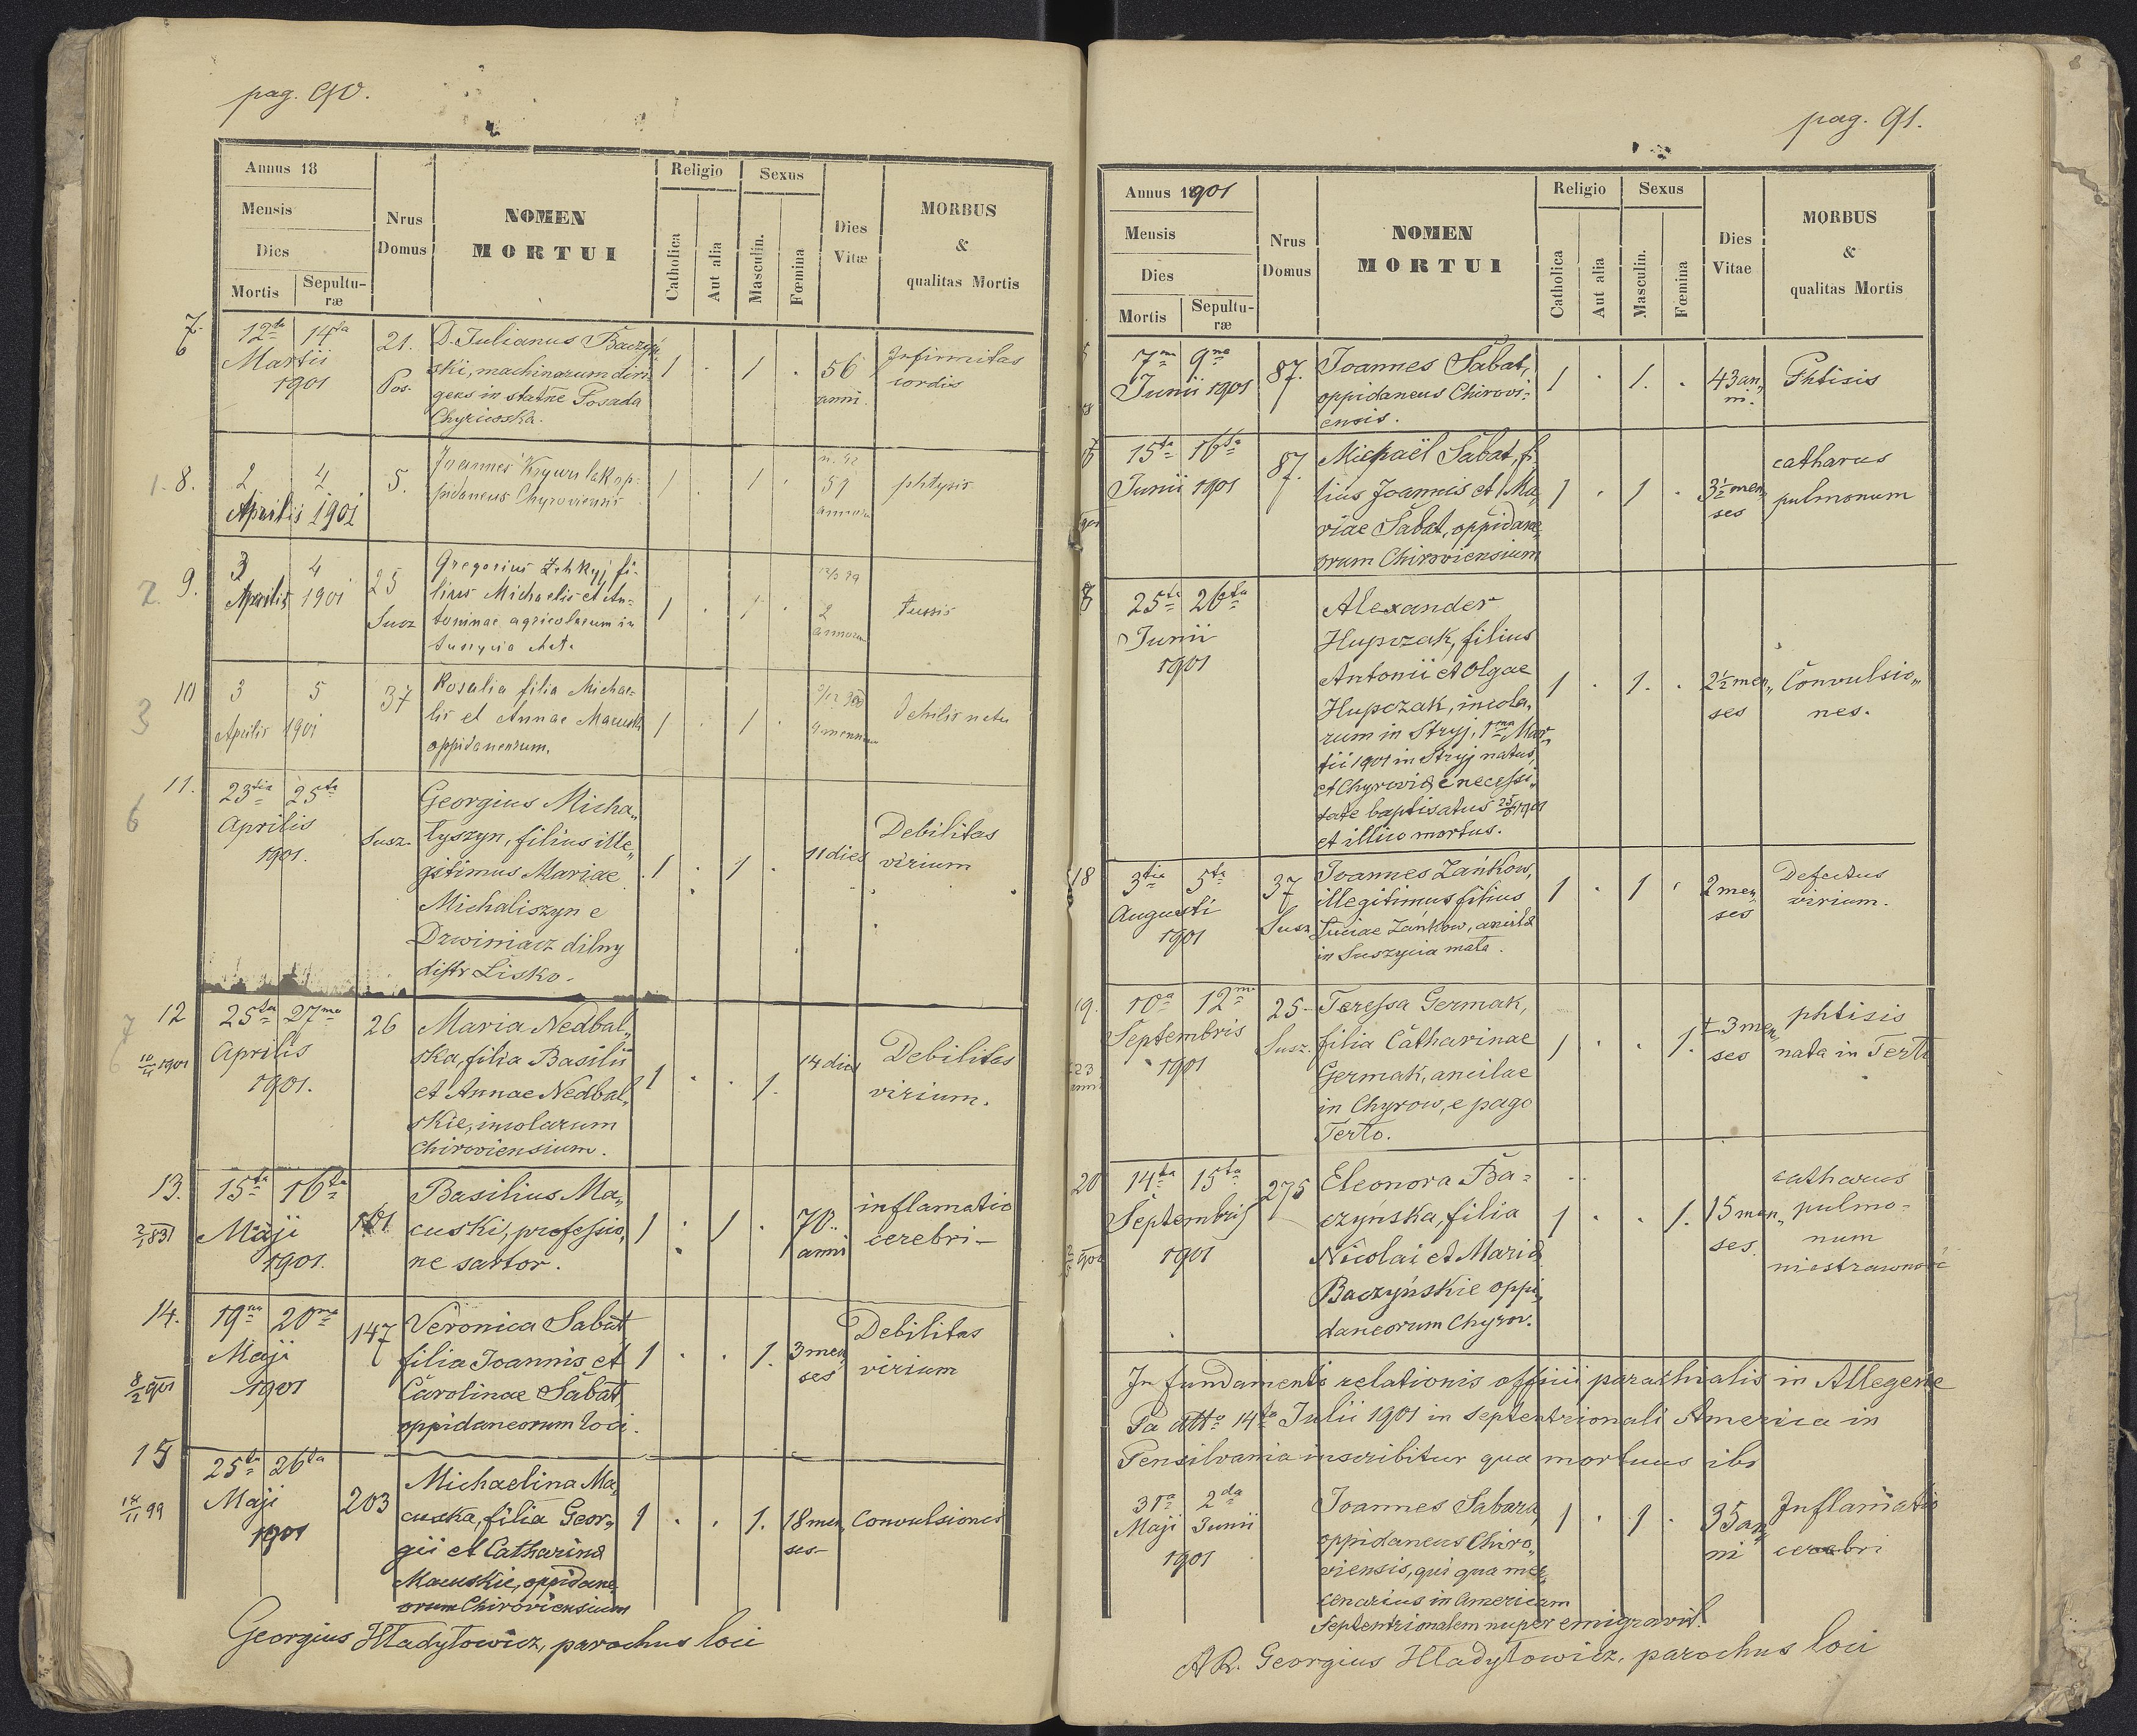 pag. 90.
Annus 18
Mensis
Dies
Mortis
Sepultu-
ræ
Nrus
Domus
NOMEN
MORTUI
Religio
Catholica
Aut alia
Sexus
Masculin.
Fœmina
Dies
Vitæ
MORBUS
&
qualitas Mortis
7.
12ta 14ta
Martii
1901
21.
Pos.
D. Julianus Baczyń
ski, machinarum diri
gens in statne Posada
Chyriowska.
1 . 1 .
56
anni.
Infirmitas
cordis
8.
2 4
Aprilis 1901
5.
Joannes op-
pidaneus Chyroviensis
1 . 1 .
59
annorum
phtysis
9.
3 4
Aprilis 1901
25
Susz
Gregorius fi-
lius Michaelis et An-
toninae agricolarum in
1 . 1 .
2
annorum
tussis
10
3 5
Aprilis 1901
37
Rosalia filia Michae-
lis et Annae
oppidaneorum.
1 . 1 .
Debilis natu
11.
6
23tia 25ta
Aprilis
1901.
Susz.
Georgius Micha„
lyszyn, filius ille„
gitimus Mariae
Michaliszyn e
Dzwiniacz dilny
distr Lisko.
. 1 . 1 .
11 dies
Debilitas
virium
12
10/4 1901
25ta 27ma
Aprilis
1901.
26
Maria Nedbal„
ska, filia Basilii
et Annae Nedbal„
skie, incolarum
Chiroviensium.
1 . . 1.
14 dies
Debilitas
virium.
13.
2/1 831
15ta 16ta
Maji
1901.
Basilius Ma„
cuski, professio„
ne sartor.
1 . 1 .
70..
anni
inflamatio
cerebri –
14.
8/2 901
19na 20ma
Maji
1901
147
Veronica Sabat
filia Joannis et
Carolinae Sabat,
oppidaneorum loci.
1 . . 1.
3 men„
ses
Debilitas
virium
15
14/11 99
25ta 26ta
Maji
1901
203
Michaelina Ma„
cuska, filia Geor„
gii et Catharina
Macuskie, oppidane„
orum Chiroviensium
1 . . 1.
18 men„
ses –
Convulsiones
Georgius Hladyłowicz, parochus loci
pag. 91.
Annus 1901
Mensis
Dies
Mortis
Sepultu-
ræ
Nrus
Domus
NOMEN
MORTUI
Religio
Catholica
Aut alia
Sexus
Masculin.
Fœmina
Dies
Vitae
MORBUS
&
qualitas Mortis
7ma 9na
Junii 1901
87.
Joannes Sabat,
oppidaneus Chirovi-
ensis.
1 . 1. .
43 an„
ni.
Phtisis
15ta 16ta
Junii 1901
87.
Michaël Sabat, fi
lius Joannis et Ma„
riae Sabat, oppidane„
orum Chiroviensium
1 . 1 .
3½ men„
ses
catharus
pulmonum
25ta 26ta
Junii
1901
Alexander
Hupczak, filius
Antonii et Olgae
Hupczak, incola„
rum in Stryj, 1ma Mar„
tii 1901 in Stryj natus,
et Chyrovia e necessi„
tate baptisatus 25/6 1901
et illico mortus.
1 . 1. .
2½ men„
ses
Convulsio„
nes.
18
3tia 5ta
Augusti
1901
37
Susz
Joannes Zańkow,
illegitimus filius
Luciae Zańkow, ancila
in Suszyca mała.
1 . 1 .
2 men„
ses
Defectus
virium.
19.
10a 12ma
Septembris
1901
25 –
Susz.
Teressa Germak,
filia Catharinae
Germak, ancilae
in Chyrow, e pago
Terło.
1 . . 1.
3 men„
ses
phtisis
nata in Terło
20
14ta 15ta
Septembris
1901
275
Eleonora Ba-
czyńska, filia
Nicolai et Maria
Baczyńskie oppi„
daneorum Chyrov.
1 . . 1.
15 men„
ses.
catharus
pulmo-
num
In fundamento relationis officii parochialis in Allegenie
Pa dtto 14ta Julii 1901 in septentrionali America in
Pensilvania inscribitur qua mortuus ibi
31a 2da
Maji Junii
1901
Joannes Sabara,
oppidaneus Chiro„
viensis, qui qua mer„
cenarius in Americam
Septentrionalem nuper emigravit.
1 . 1 .
35 an„
ni
Inflamatio
cerebri
AR. Georgius Hladyłowicz, parochus loci